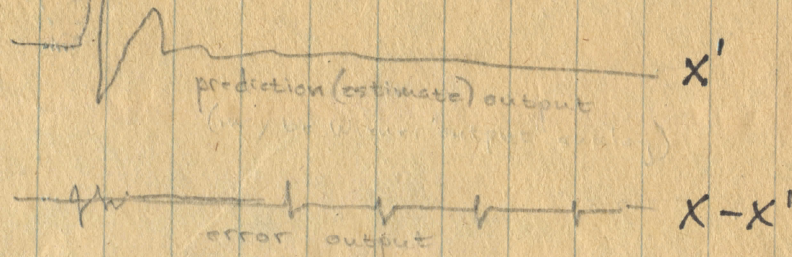 x'
prediction (estimate) output
x-x'
error output